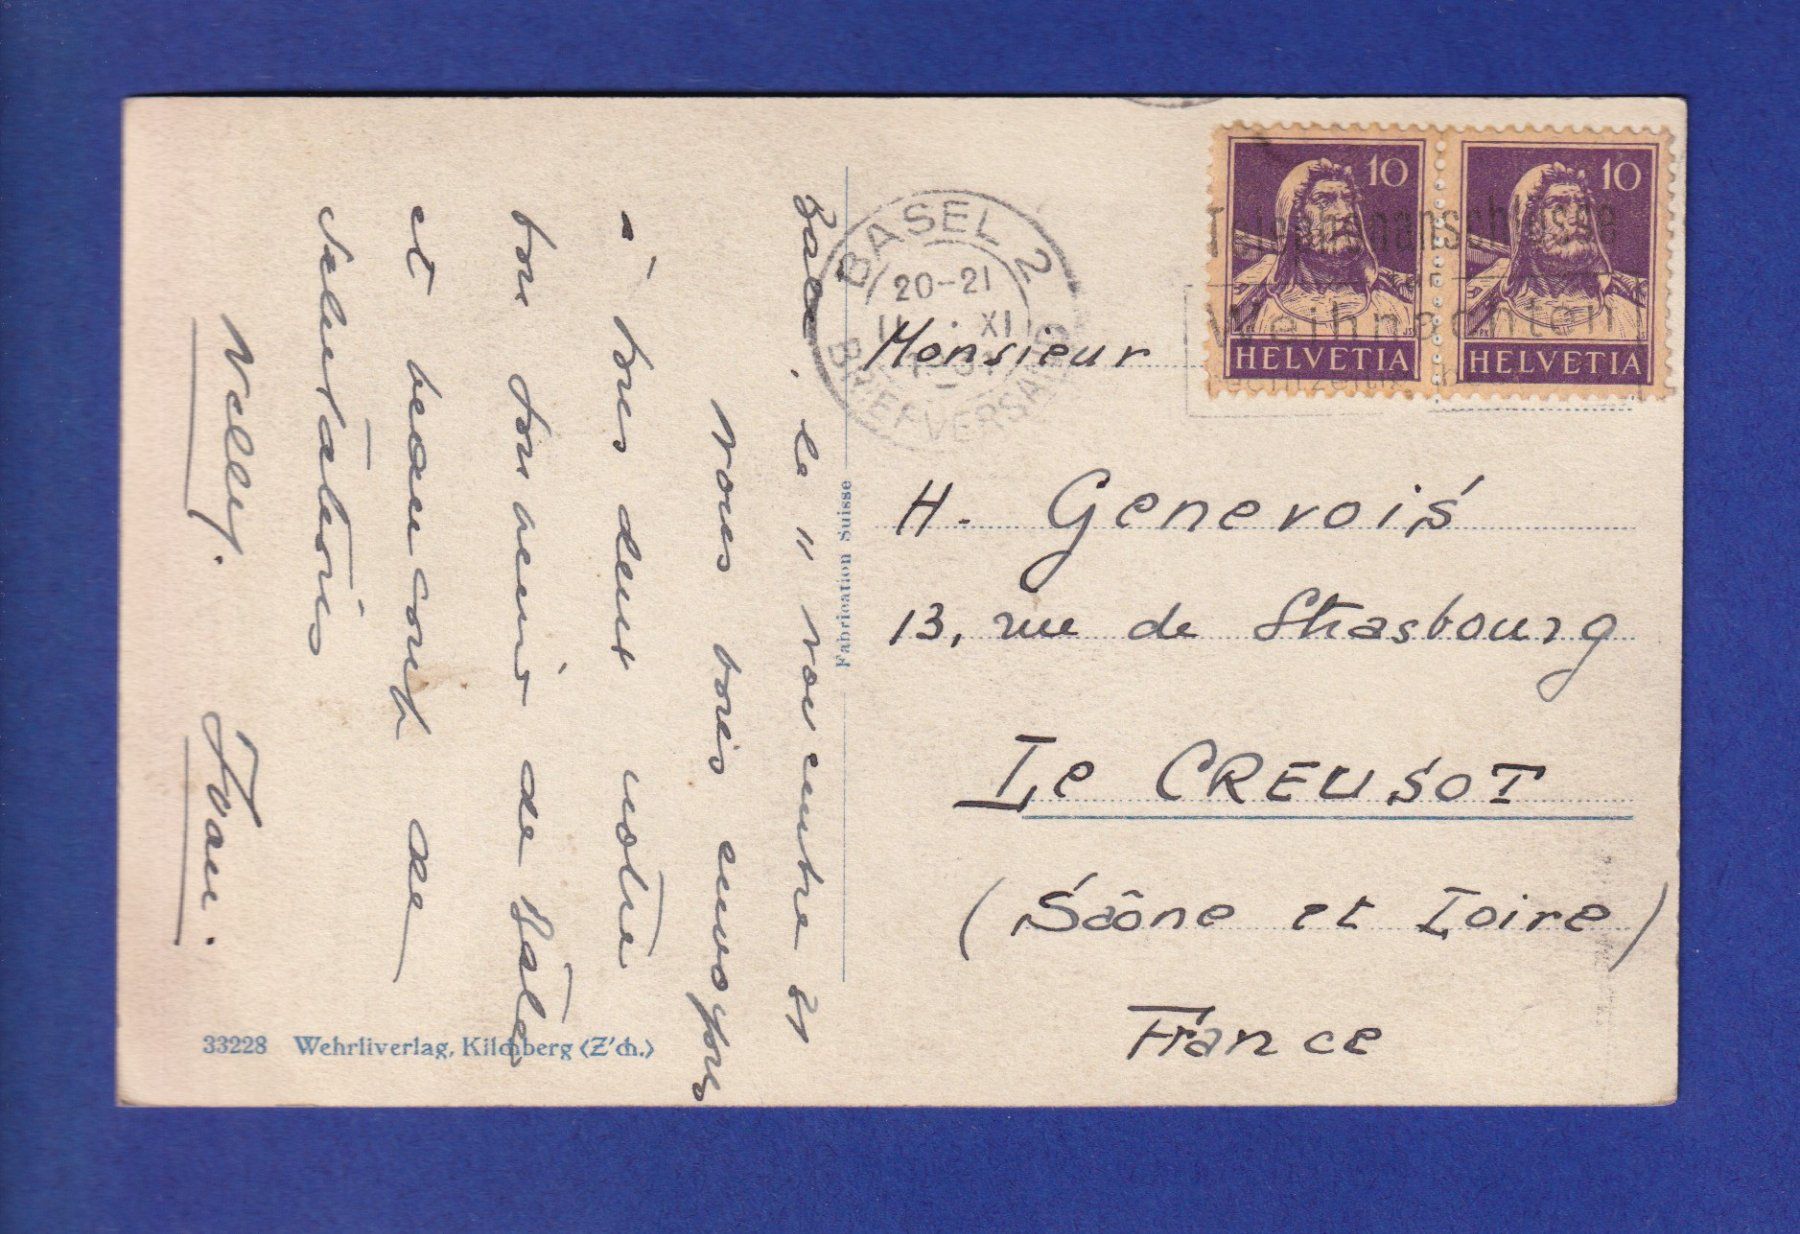 Bâle. le 11 novembre 31
Nous vous envoyons
à tous deux notre
bon souvenir de Bâle
et beaucoup de
salutations
Willy. Ivan.
33228 Wehrliverlag, Kilchberg (Z'ch.)
Fabrication Suisse
BASEL 2
20-21
11. XI
BRIEFVERSAND
10
HELVETIA
10
HELVETIA
Telephonanschlüsse
Weihnachten
rechtzeitig
Monsieur
H. Genevois
13, rue de Strasbourg
Le CREUSOT
(Saône et Loire)
France